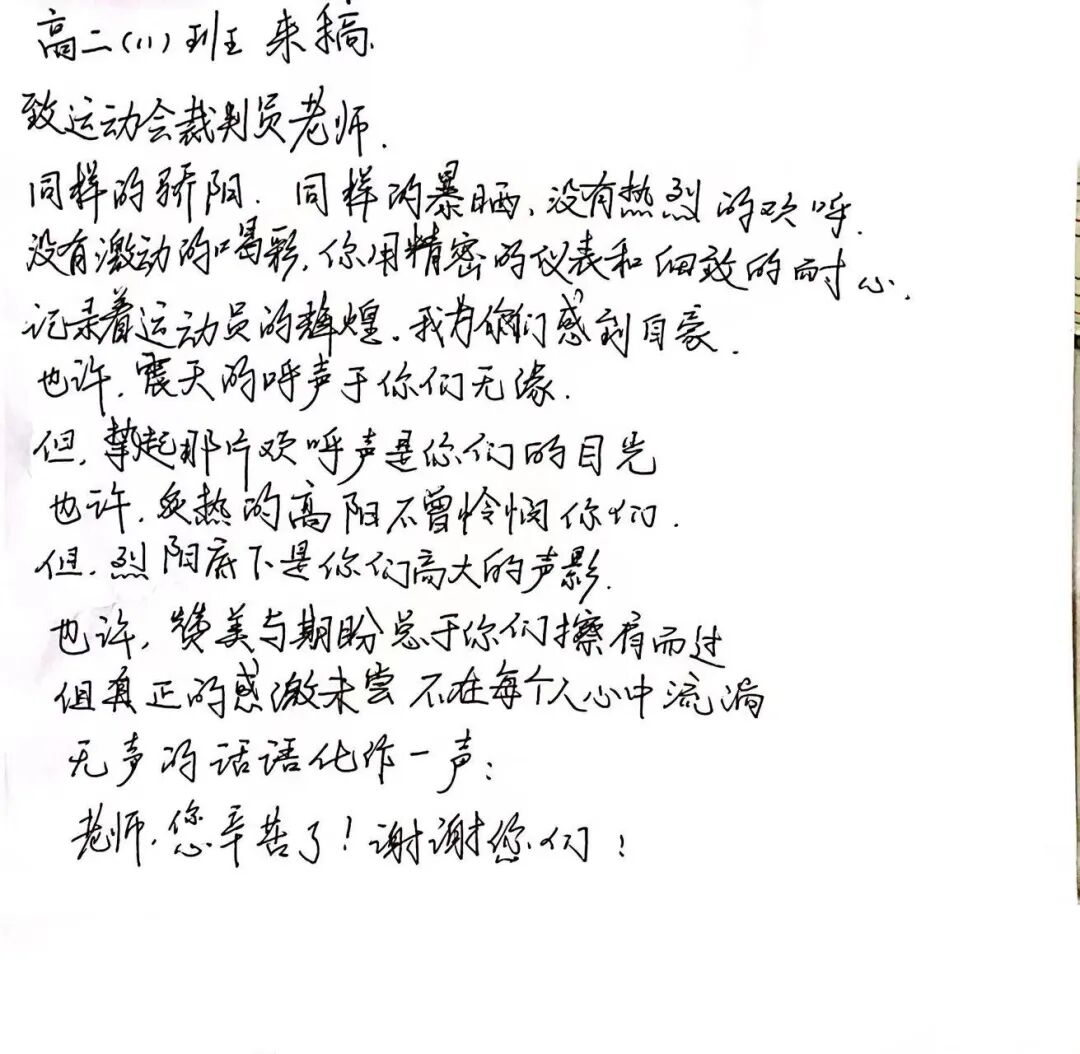 高二(11)班 来稿.
致运动会裁判员老师.
同样的骄阳.同样的暴晒、没有热烈的欢呼.
没有激动的喝彩.你用精密的仪表和细致的耐心.
记录着运动员的辉煌.我为你们感到自豪.
也许.震天的呼声于你们无缘.
但.擎起那片欢呼声是你们的目光
也许.炙热的高阳不曾怜悯你们.
但.烈阳底下是你们高大的声影.
也许,赞美与期盼总于你们擦肩而过
但真正的感激未尝不在每个人心中流淌
无声的话语化作一声:
老师.您辛苦了!谢谢您们!